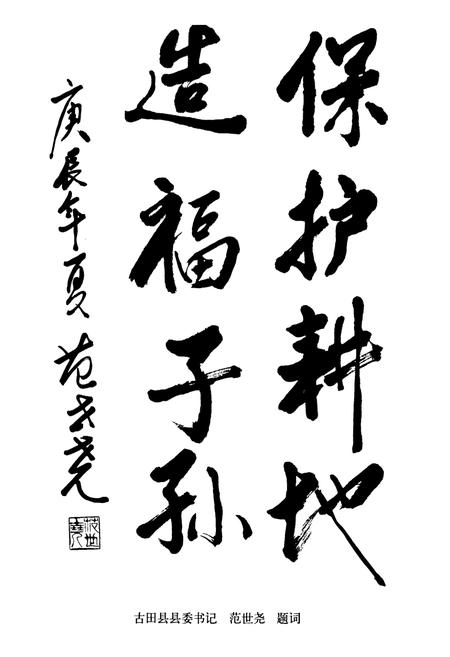 保护耕地
造福子孙
庚辰年夏 范世尧
范世尧
古田县县委书记 范世尧 题词